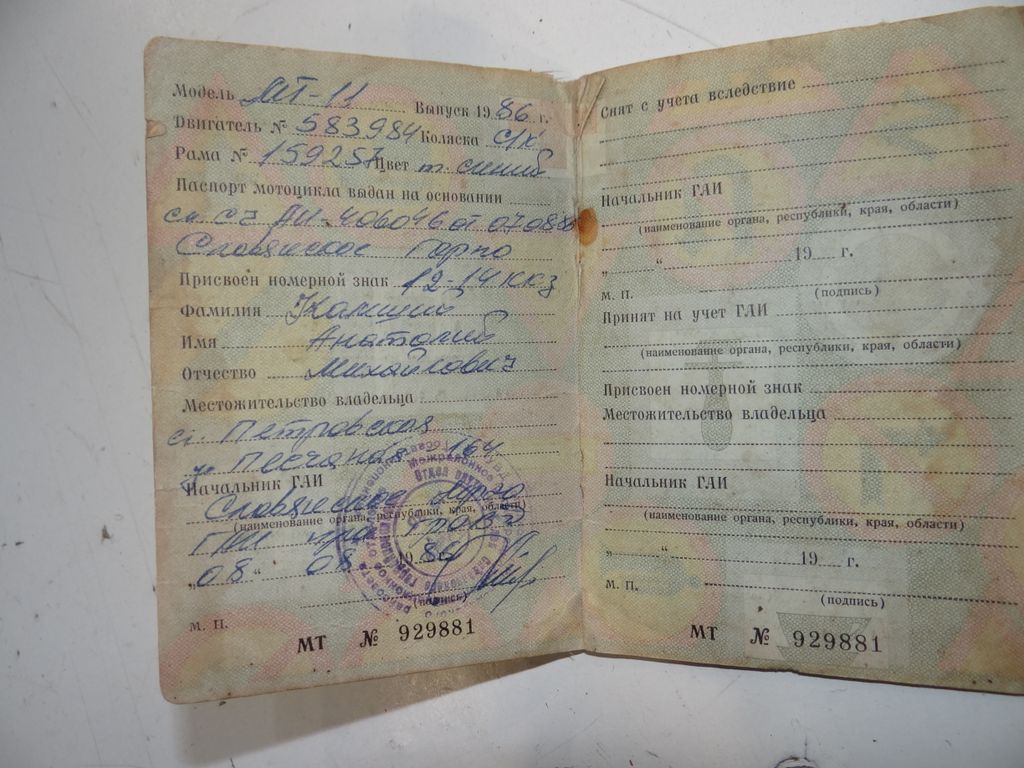 Модель МТ-11 Выпуск 1986 г.
Двигатель № 583984 Коляска с/к
Рама № 159257 Цвет т. синий
Паспорт мотоцикла выдан на основании
см. сч АИ-406046 от 070886
Славянское Горпо
Присвоен номерной знак 12-14 ККЗ
Фамилия
Имя Анатолий
Отчество Михайлович
Местожительство владельца
ст. Петровская
ул Песчаная 164
Начальник ГАИ
Славянское
(наименование органа, республики, края, области)
ГАИ
„08“ 08 1986
(подпись)
М. П.
МТ № 929881
Снят с учета вследствие
Начальник ГАИ
(наименование органа, республики, края, области)
„ “ 19 г.
М. П. (подпись)
Принят на учет ГАИ
(наименование органа, республики, края, области)
Присвоен номерной знак
Местожительство владельца
Начальник ГАИ
(наименование органа, республики, края, области)
„ “ 19 г.
М. П. (подпись)
МТ № 929881